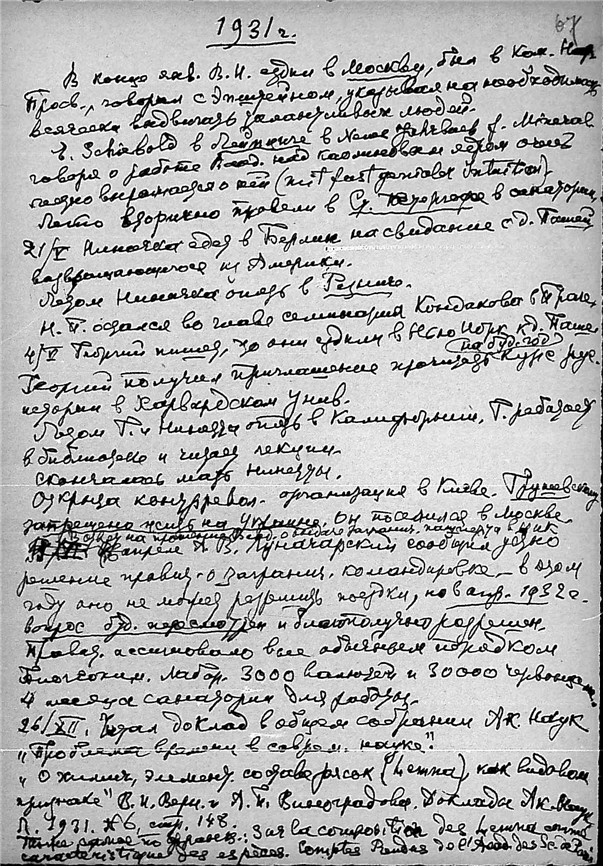 67
1931 г.
В конце янв. В.И. ездил в Москву, был в Ком. Нар.
Просв., говорил с Эпштейном, указывал на необходимость
всячески выдвигать талантливых людей.
E. Schiebold в Лейпциге в Neue Jahrb. f. Mineral.
говоря о работе над каолиновым ядром очень
лестно выражается о ней (mit fast genialer Intuition)
Лето вторично провели в Ст. Петергофе в санатории.
21/V Ниночка едет в Берлин на свидание с д. Пашей
возвращающегося из Америки.
Летом Ниночка опять в
Н. П. остался во главе семинария Кондакова в Праге.
4/V Георгий пишет, что они ездили в Нью Йорк к д. Паше.
Георгий получил приглашение прочитать на буд. год курс рус.
истории в Харвардском унив.
Летом Г. и Нинетта опять в Калифорнии, Г. работает
в библиотеке и читает лекции.
Скончалась мать Нинетты.
Открыта контррев. организация в Киеве. Грушевскому
запрещено жить на Украине. Он поселился в Москве.
В ответ на прошение Верн. о выдаче заграничн. паспорта в ЦИК
апреля А. В. Луначарский сообщил устно
решение правит. о заграни. командировке – в этом
году оно не может разрешить поездки, но в апр. 1932 г.
вопрос буд. пересмотрен и благополучно разрешен.
Правит. ассигновало вне обычным порядком
Биогеохим. лабор. 3000 валютой и 30000 червонцами.
4 месяца санатории для работы.
26/XII. Читал доклад в общем собрании Ак. Наук
„Проблема времени в соврем. науке".
„О химич. элемент. составе рясок (Lemna), как видовом
признаке" В.И. Верн. и А.П. Виноградова. Доклады Ак. Наук
А. 1931. № 6, стр. 148.
Тоже самое по франц.: Sur la composition des Lemna comme
caracteristique des espèces. Comptes Rendus de l'Acad. des Sc. de